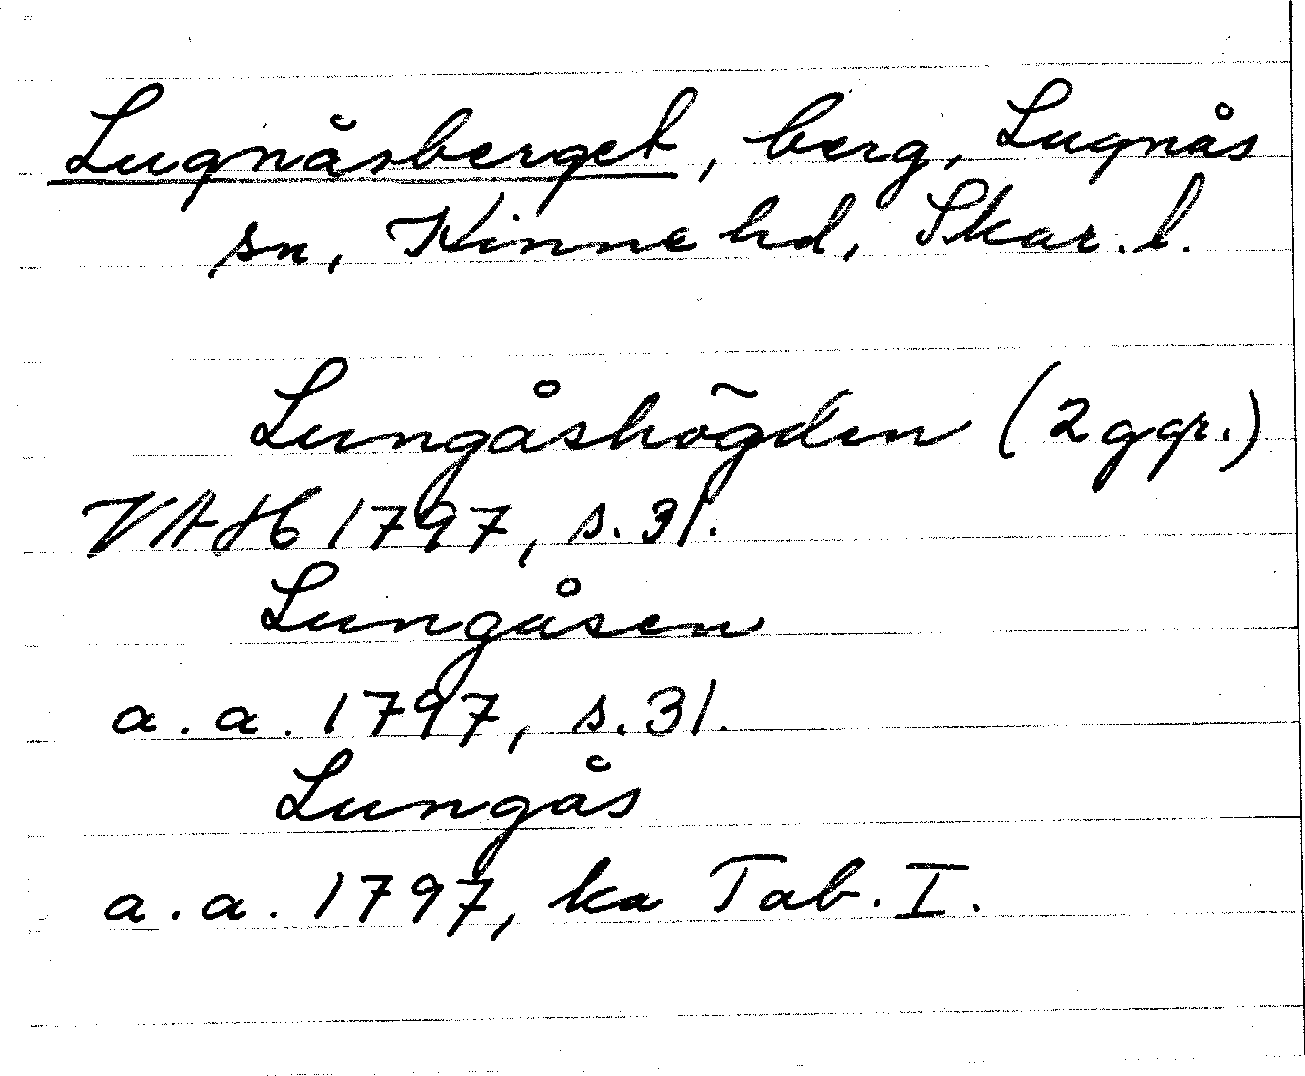 Lugnåsberget, berg, Lugnås
sn, Kinne hd, Skar. l.
Lungåshögden (2 ggr.)
VAH 1797, s. 31.
Lungåsen
a. a. 1797, s. 31.
Lungås
a. a. 1797, ka Tab. I.